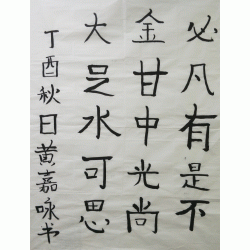 必凡有是不
金甘中光尚
大足水可思
丁酉秋日黄嘉咏书